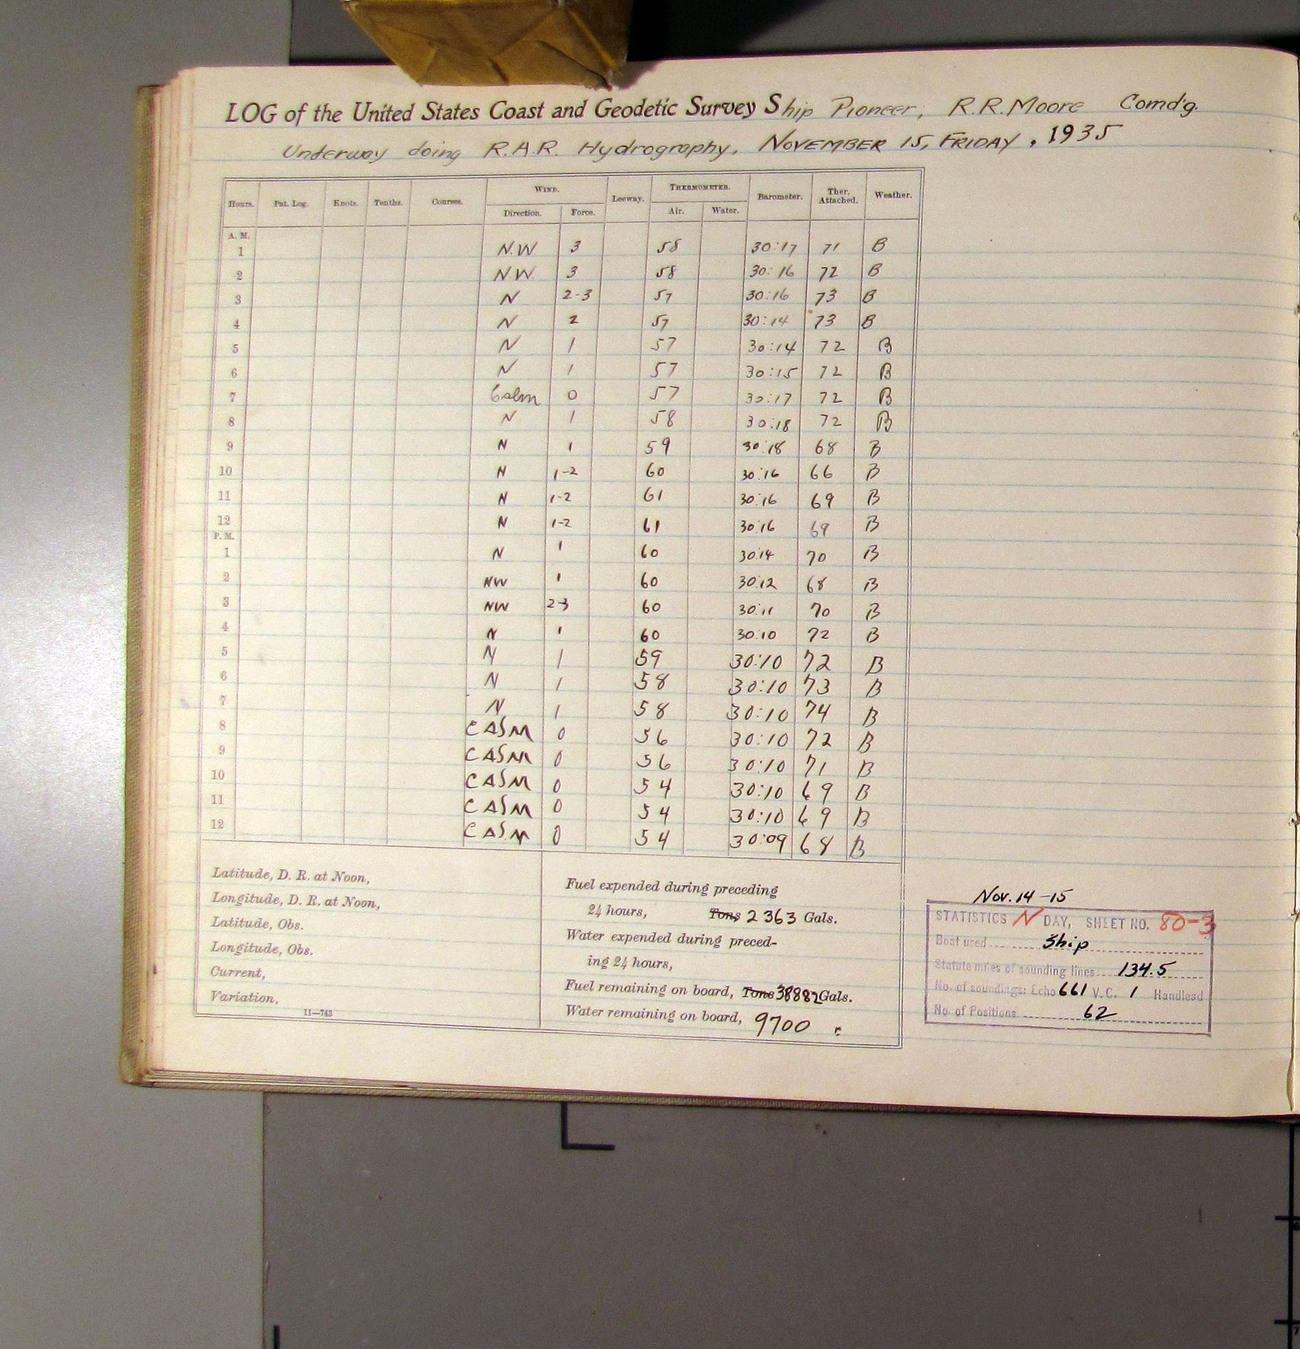 LOG of the United States Coast and Geodetic Survey Ship Pioneer, R.R. Moore Comd'g.
Underway doing R.A.R. Hydrography, NOVEMBER 15, FRIDAY, 1935
Hours. Pat. Log. Knots. Tenths. Courses. WIND. Leeway. THERMOMETER. Barometer. Ther. Attached. Weather.
Direction. Force. Air. Water.
A. M.
1 N.W 3 58 30:17 71 B
2 N.W. 3 58 30:16 72 B
3 N 2-3 57 30:16 73 B
4 N 2 57 30:14 73 B
5 N 1 57 30:14 72 B
6 N 1 57 30:15 72 B
7 Calm 0 57 30:17 72 B
8 N 1 58 30:18 72 B
9 N 1 59 30:18 68 B
10 N 1-2 60 30:16 66 B
11 N 1-2 61 30:16 69 B
12 N 1-2 61 30:16 69 B
P. M.
1 N 1 60 30:14 70 B
2 NW 1 60 30:12 68 B
3 NW 2-3 60 30:11 70 B
4 N 1 60 30:10 72 B
5 N 1 59 30:10 72 B
6 N 1 58 30:10 73 B
7 N 1 58 30:10 74 B
8 CALM 0 56 30:10 72 B
9 CALM 0 56 30:10 71 B
10 CALM 0 54 30:10 69 B
11 CALM 0 54 30:10 69 B
12 CALM 0 54 30:09 68 B
Latitude, D. R. at Noon,
Longitude, D. R. at Noon,
Latitude, Obs.
Longitude, Obs.
Current,
Variation,
11—743
Fuel expended during preceding
24 hours, Tons 2363 Gals.
Water expended during preced-
ing 24 hours,
Fuel remaining on board, Tons 38882 Gals.
Water remaining on board, 9700
Nov. 14-15
STATISTICS N DAY, SHEET NO. 80-3
Boat used Ship
Statute miles of sounding lines 134.5
No. of soundings: Echo 661 V.C. 1 Handlead
No. of Positions 62